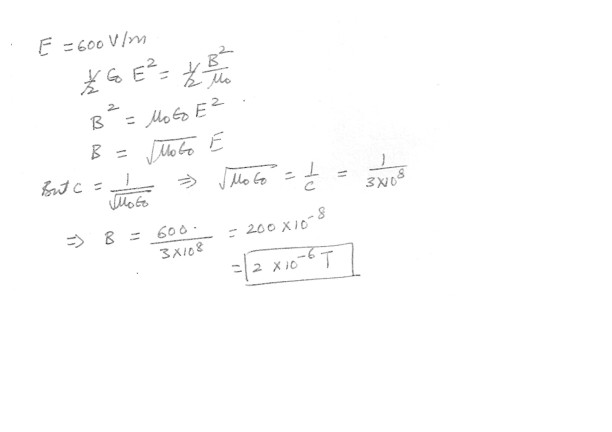 E = 600 V/m
½ ϵ₀ E² = ½ B²/μ₀
B² = μ₀ϵ₀ E²
B = √(μ₀ϵ₀) E
But C = 1/√(μ₀ϵ₀) ⇒ √(μ₀ϵ₀) = 1/C = 1/(3×10⁸)
⇒ B = 600/(3×10⁸) = 200 ×10⁻⁸
= 2 × 10⁻⁶ T